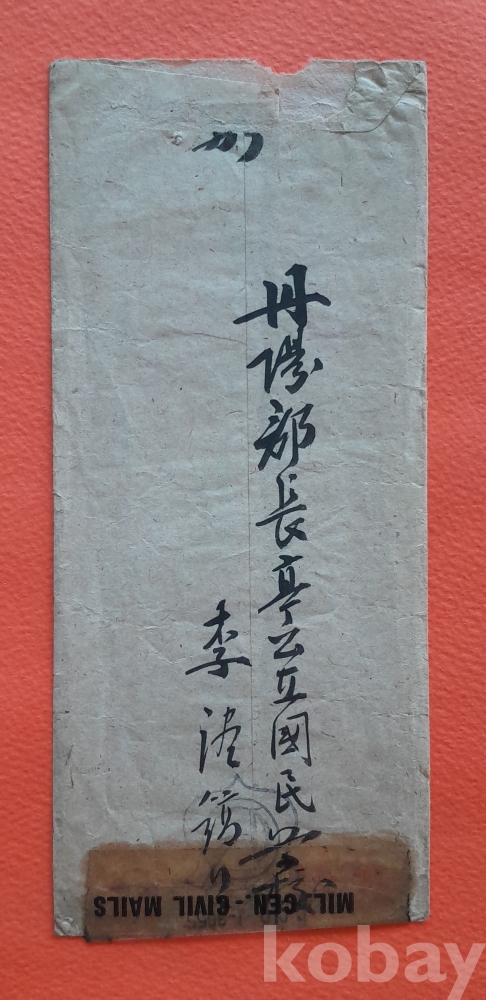 丹陽郡長亭公立國民学校
李
MIL. CEN.-CIVIL MAILS
kobay